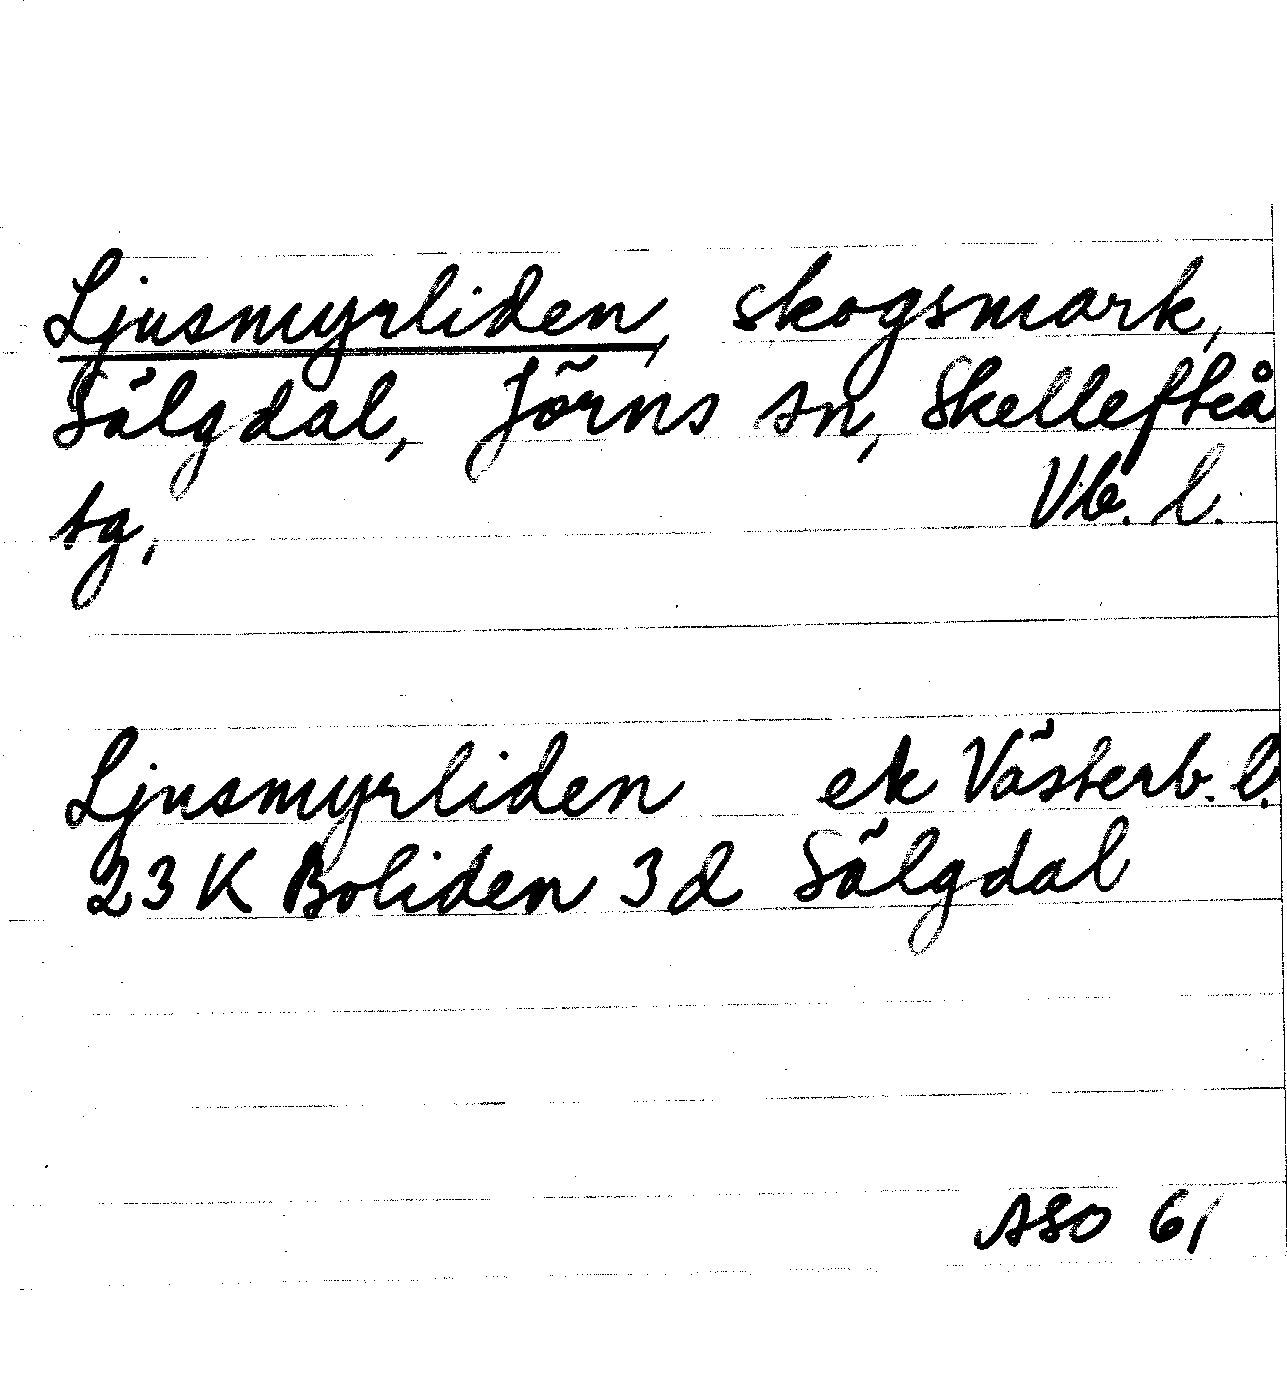 Ljusmyrliden, skogsmark,
Sälgdal, Jörns sn, Skellefteå
tg,
Vb. l.
Ljusmyrliden ek Västerb. l.
23 K Boliden 3 d Sälgdal
ASO 61